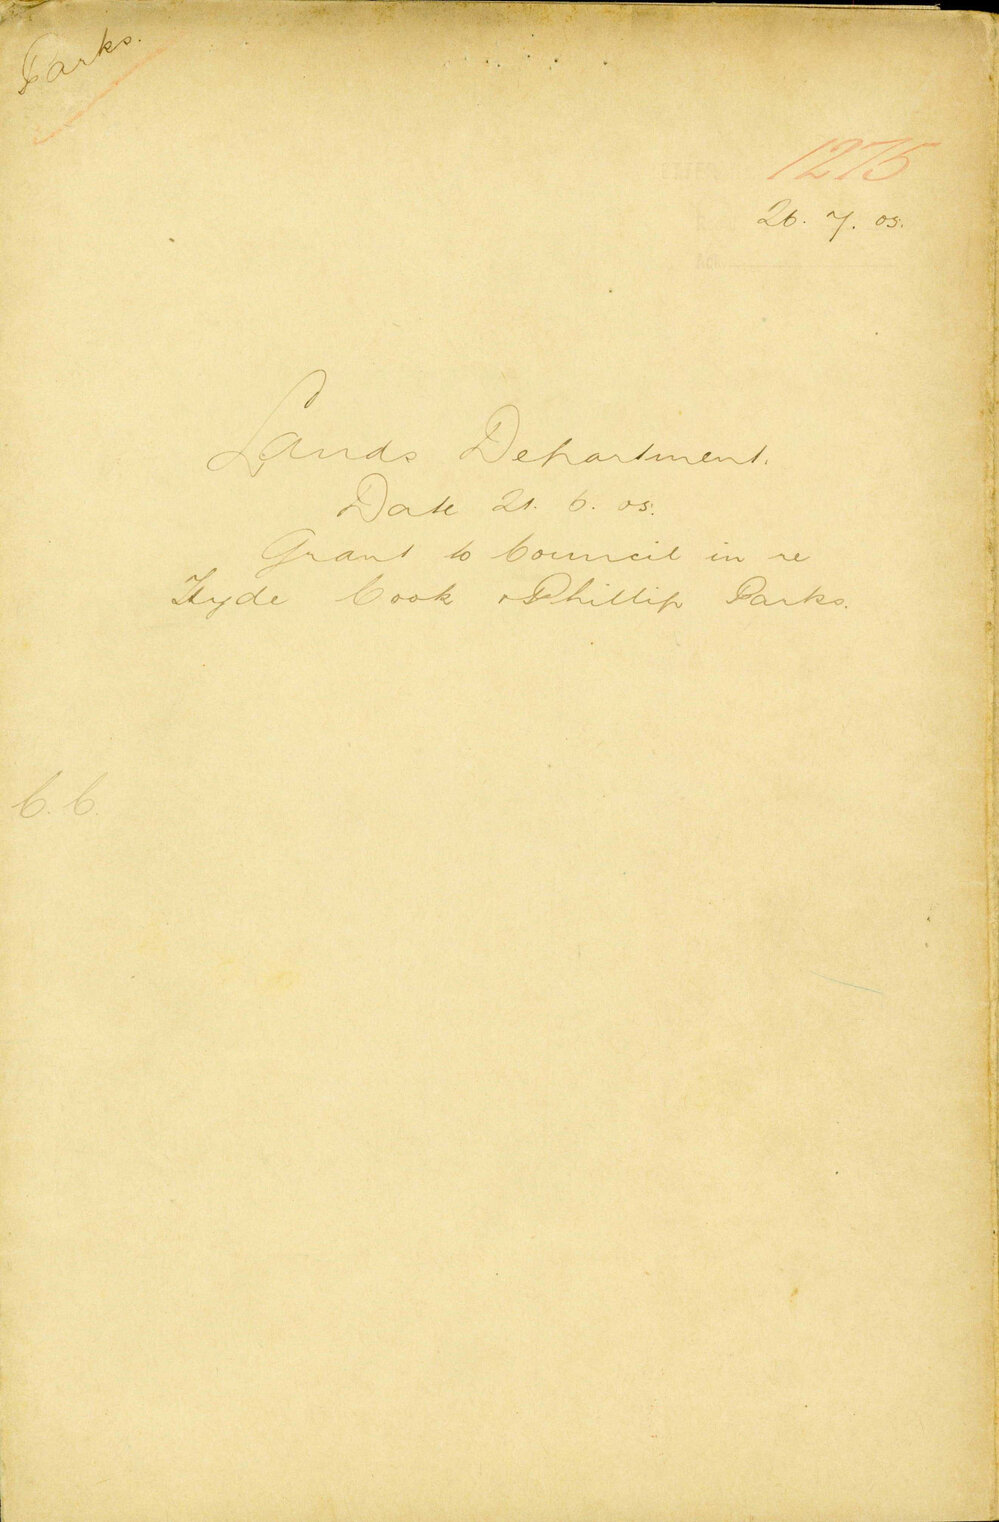 Parks.
1275
26. 7. 05.
Lands Department.
Date 21. 6. 05.
Grant to Council in re
Hyde Cook & Phillip Parks.
C. C.